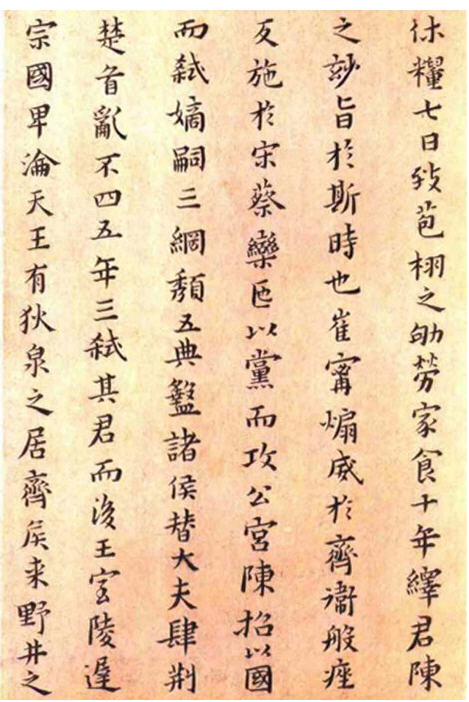 休糧七日致苞栩之劬勞家食十年繹君陳
之訬旨於斯時也崔寗煽威於齊衞般痤
反施於宋蔡欒氏以黨而攻公宮陳招以國
而弒嫡嗣三綱頽五典盭諸侯替大夫肆荆
楚首亂不四五年三弒其君而後王室陵遲
宗國卑淪天王有狄泉之居齊侯来野井之